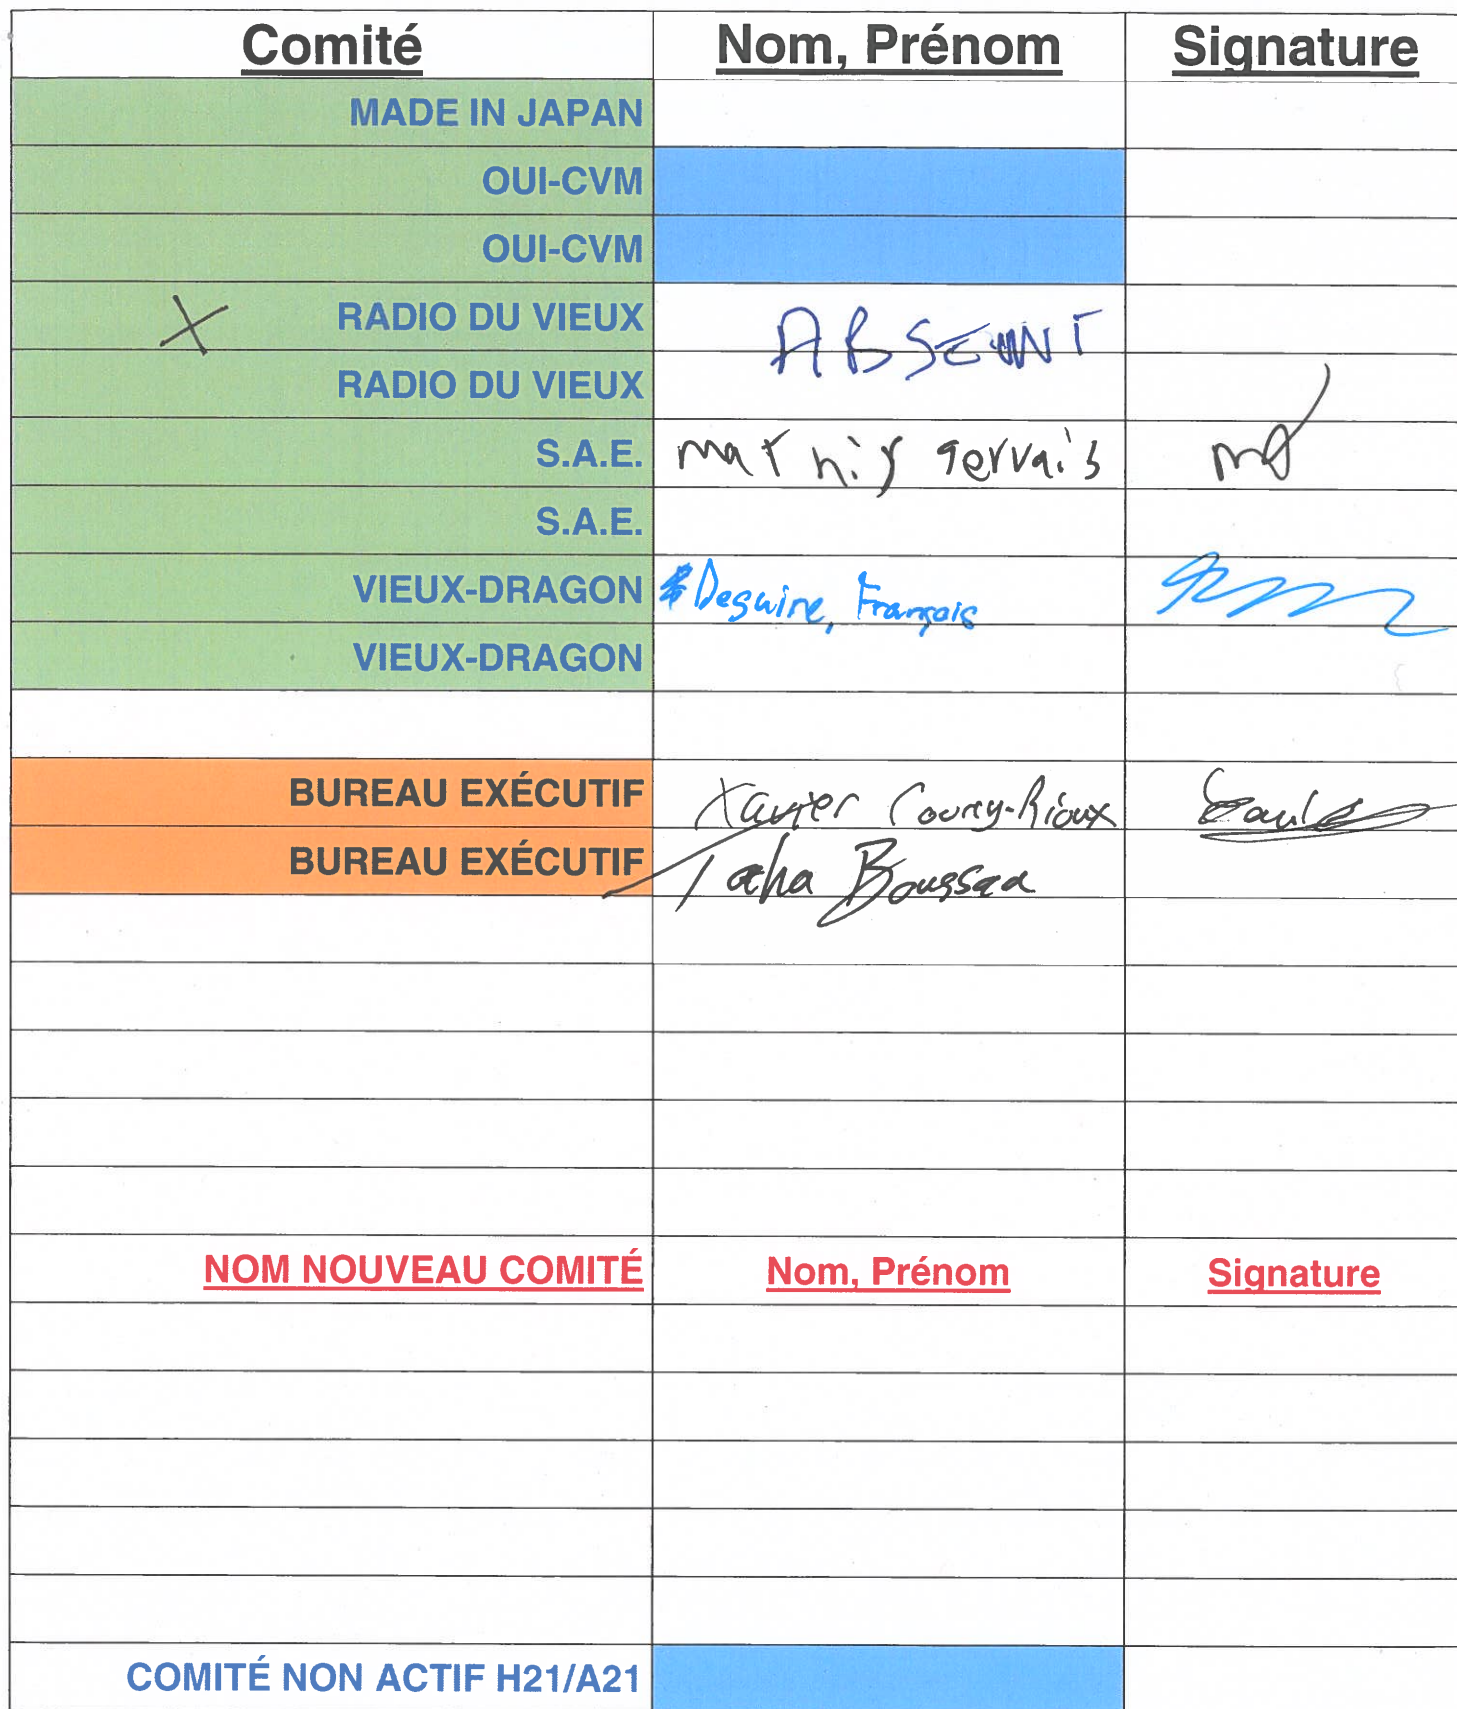 Comité Nom, Prénom Signature
MADE IN JAPAN
OUI-CVM
OUI-CVM
RADIO DU VIEUX ABSENT
RADIO DU VIEUX
S.A.E. mathis gervais mg
S.A.E.
VIEUX-DRAGON Deguire, François
VIEUX-DRAGON
BUREAU EXÉCUTIF Xavier Courcy-Rioux
BUREAU EXÉCUTIF Taha Boussaa
NOM NOUVEAU COMITÉ Nom, Prénom Signature
COMITÉ NON ACTIF H21/A21